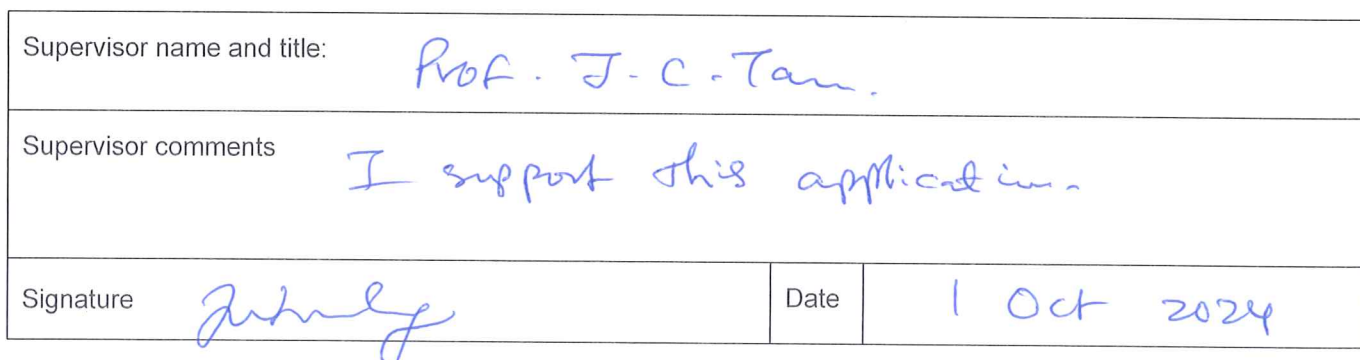 Supervisor name and title: Prof. J.C.Tan.
Supervisor comments I support this application.
Signature
Date 1 Oct 2024